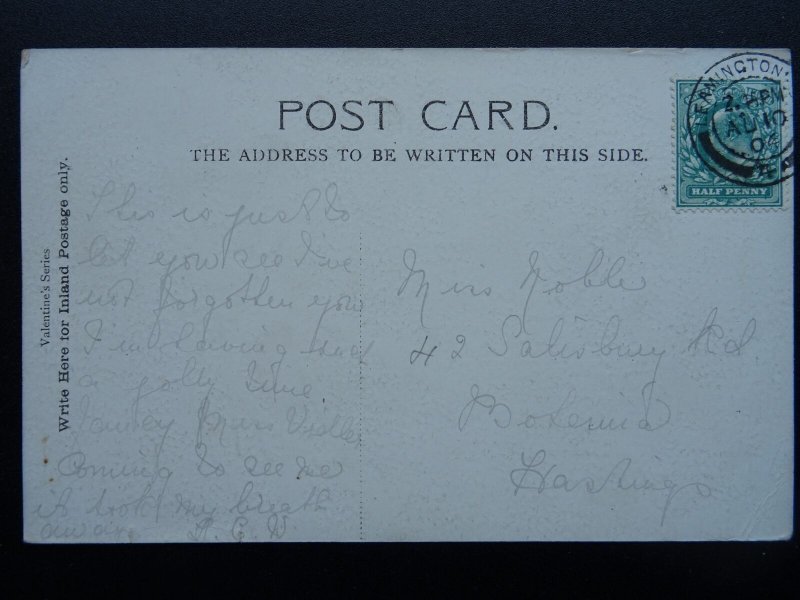 POST CARD.
THE ADDRESS TO BE WRITTEN ON THIS SIDE.
Valentine's Series
Write Here for Inland Postage only.
This is just to
let you see I've
not forgotten you
I'm having such
a jolly time
fancy Miss
Coming to see me
it took my breath
away
Miss Noble
42 Salisbury Rd
Bohemia
Hastings
HALF PENNY